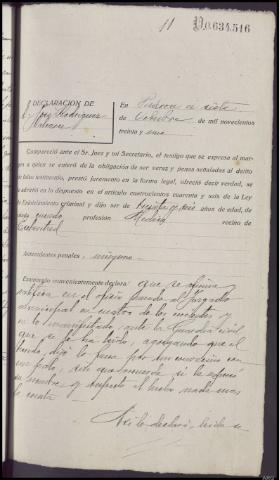 11 P.0.634,516
DECLARACION DE
D. José Rodríguez
En a siete
de Octubre de mil novecientos
treinta y uno
Compareció ante el Sr. Juez y mi Secretario, el testigo que se expresa al mar-
gen a quien se enteró de la obligación de ser veraz y penas señaladas al delito
de falso testimonio, prestó juramento en la forma legal, ofreció decir verdad, se
le advirtió en lo dispuesto en el artículo cuatrocientos cuarenta y seis de la Ley
de Enjuiciamiento criminal y dijo ser de treinta y seis años de edad, de
estado casado profesión Médico vecino de
Antecedentes penales, ninguno
Examinado convenientemente declara: que se afirma y
ratifica en el oficio pasado al Juzgado
municipal en cuatro de los corrientes y
en lo manifestado ante la Guardia civil
que se le ha leído, agregando que el
herido, dijo lo
un palo, sin que recuerde si le expresó
su nombre y respecto al hecho nada mas
le consta.
Así lo declaró, leída se